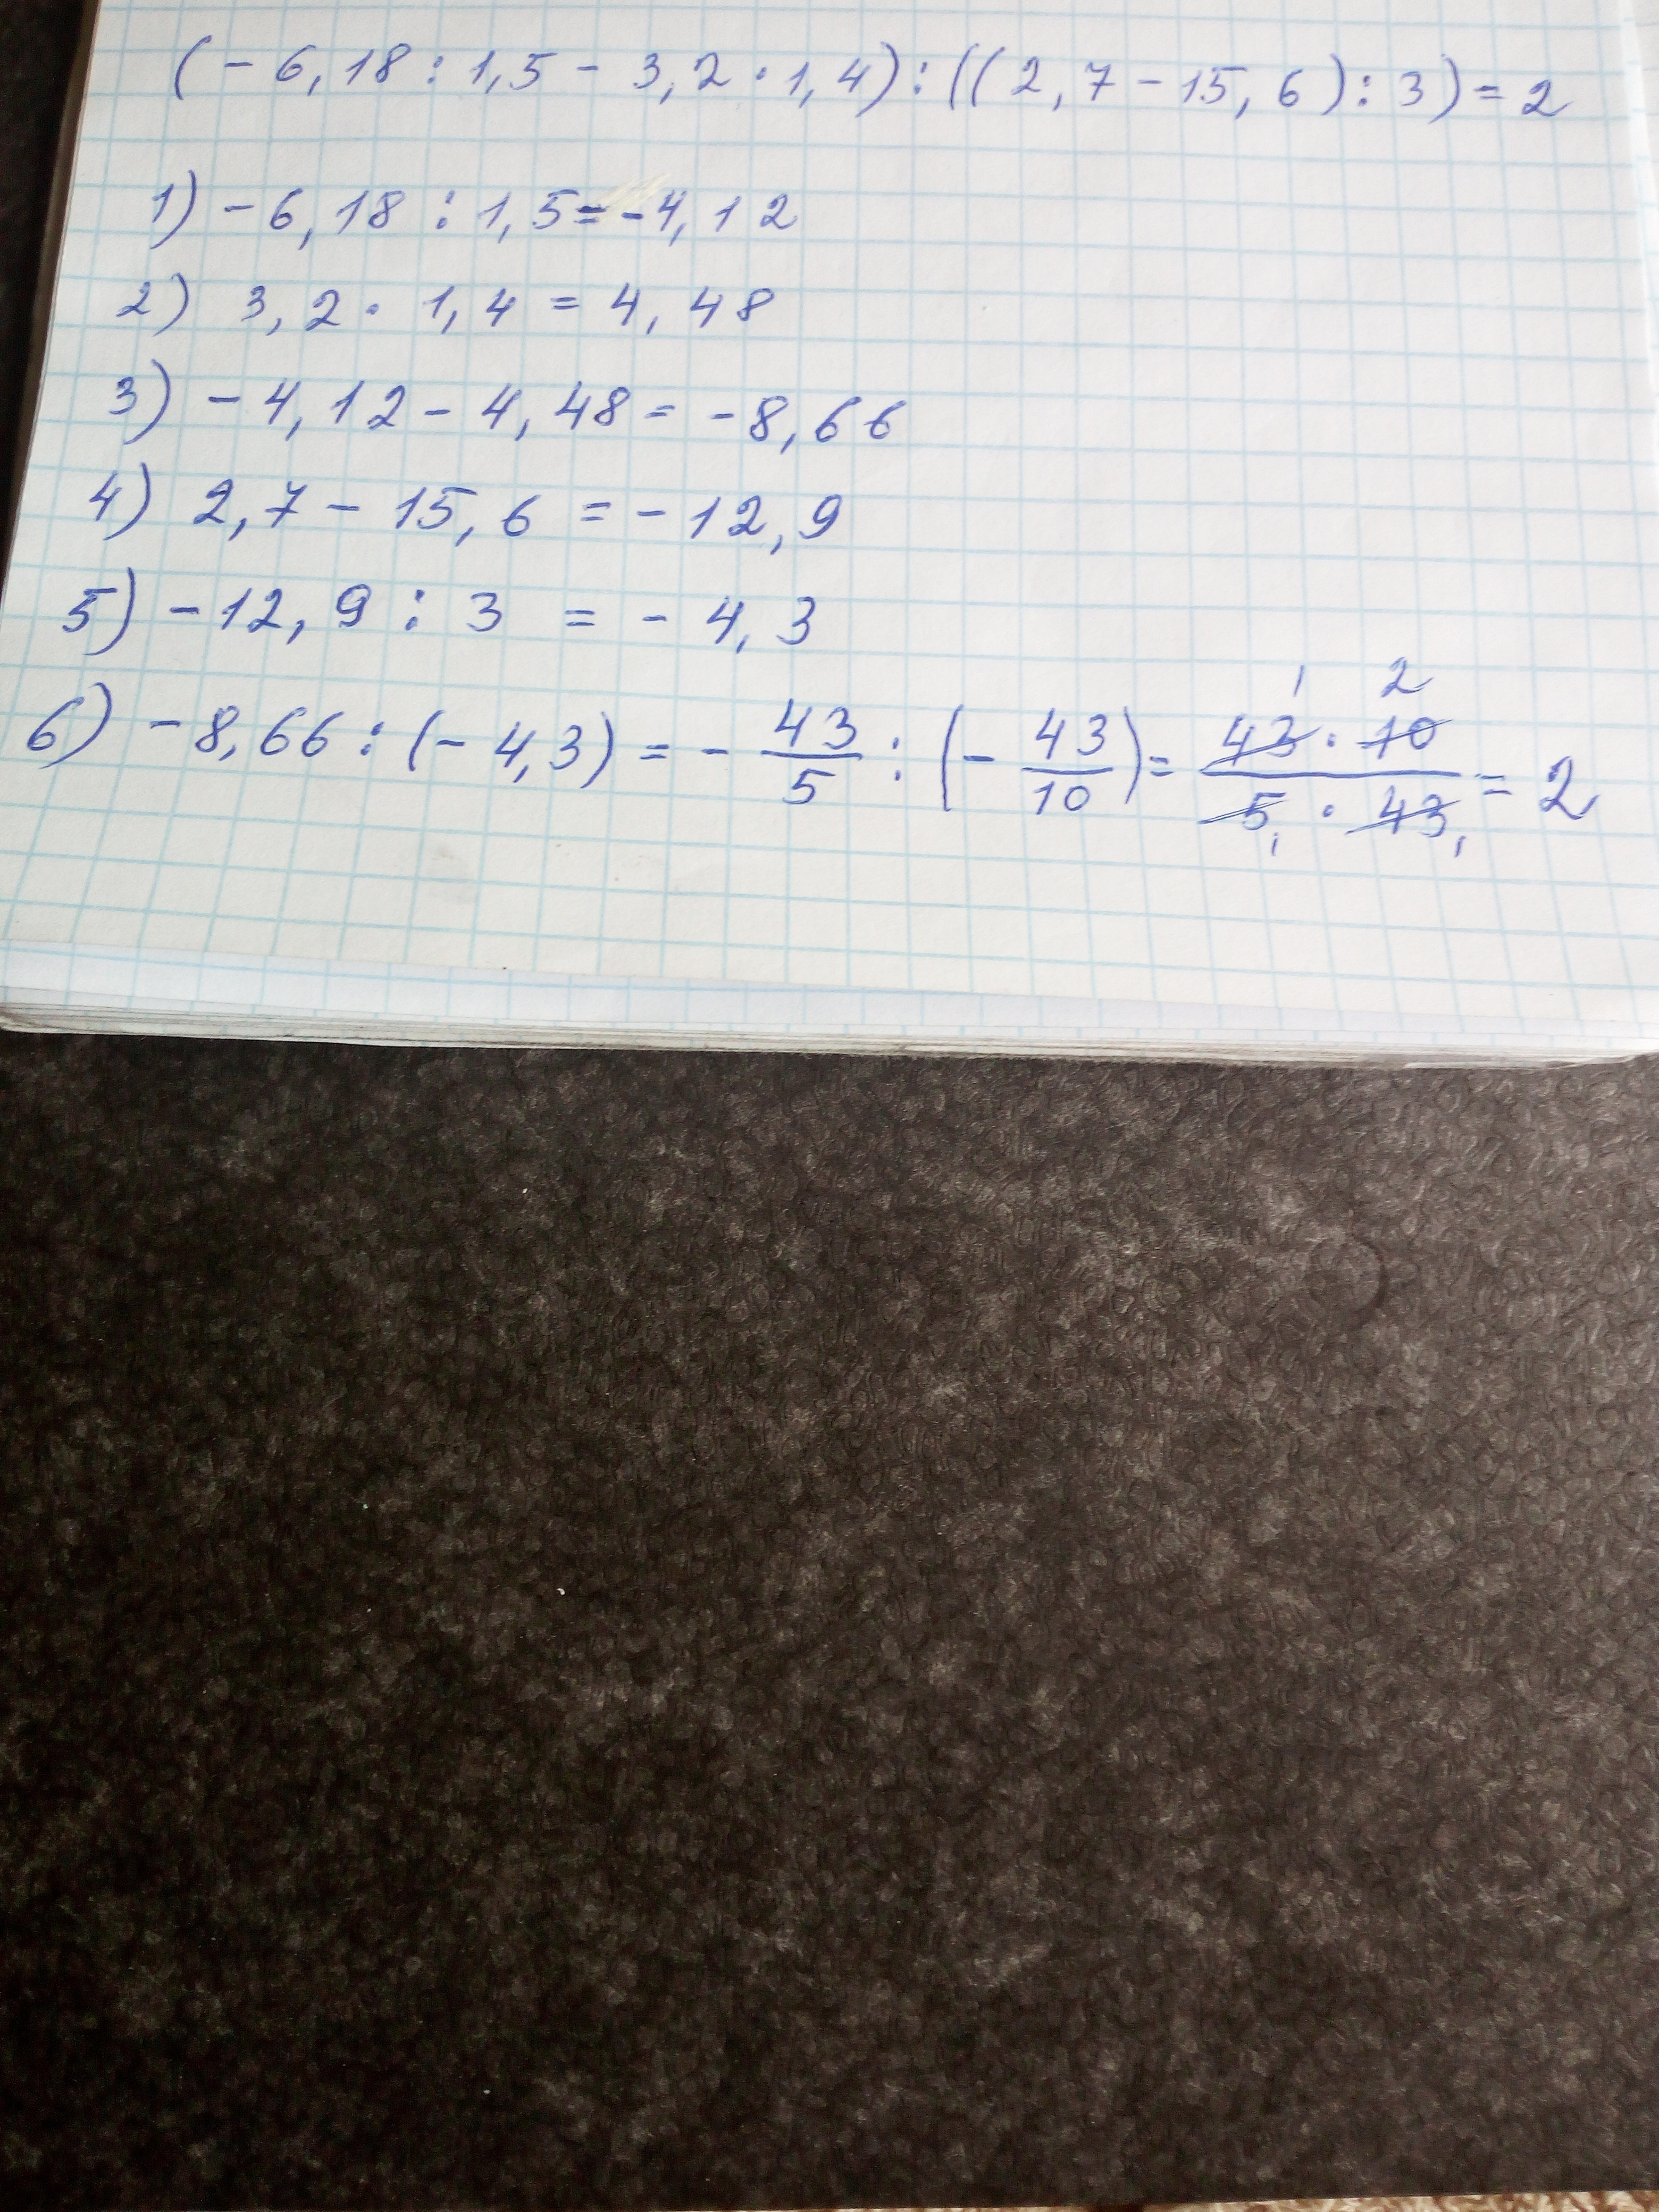 (-6,18:1,5-3,2·1,4):((2,7-15,6):3)=2
1) -6,18:1,5=-4,12
2) 3,2·1,4=4,48
3) -4,12-4,48=-8,66
4) 2,7-15,6=-12,9
5) -12,9:3=-4,3
6) -8,66:(-4,3)=-43/5:(-43/10)=43·10/5·43=2